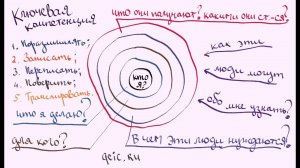 Ключевая
компетенция
что они получают? какими они ст-ся?
1. Поразмышлять;
2. Записать;
3. Переписать;
4. Поверить;
5. Транслировать.
что я делаю?
для кого?
кто
я?
как эти
люди могут
обо мне узнать?
В чем эти люди нуждаются?